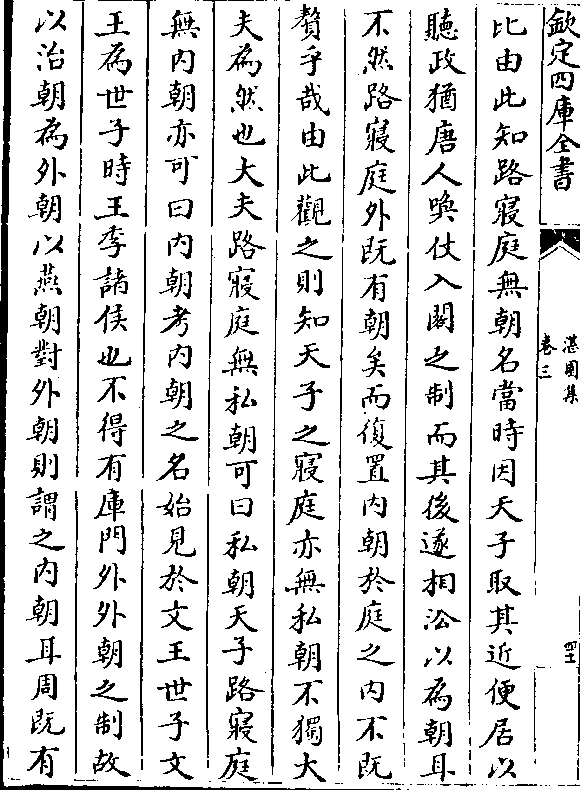 欽定四庫全書
湛園集
卷三
比由此知路寢庭無朝名當時因天子取其近便居以
聽政猶唐人喚仗入閣之制而其後遂相沿以為朝耳
不然路寢庭外既有朝矣而復置内朝於庭之内不既
贅乎哉由此觀之則知天子之寢庭亦無私朝不獨大
夫為然也大夫路寢庭無私朝可曰私朝天子路寢庭
無内朝亦可曰内朝考内朝之名始見於文王世子文
王為世子時王季諸侯也不得有庫門外外朝之制故
以治朝為外朝以燕朝對外朝則謂之内朝耳周既有